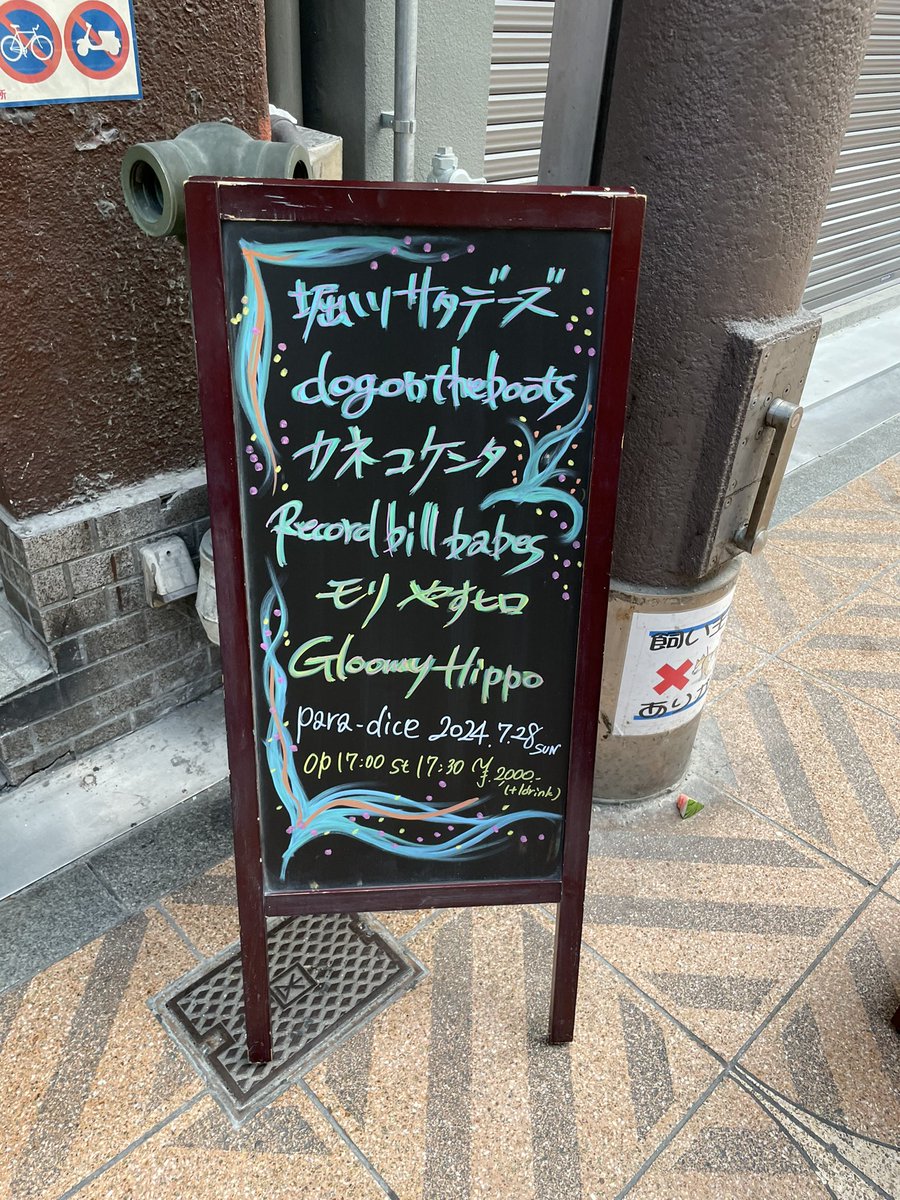 所
堀川サタデーズ
dogontheboots
カネコケンタ
Record bill babes
モリ やすヒロ
Gloomy Hippo
para-dice 2024.7.28 SUN
op 17:00 st 17:30 ¥2,000-
(+1drink)
飼い主
✖
あり